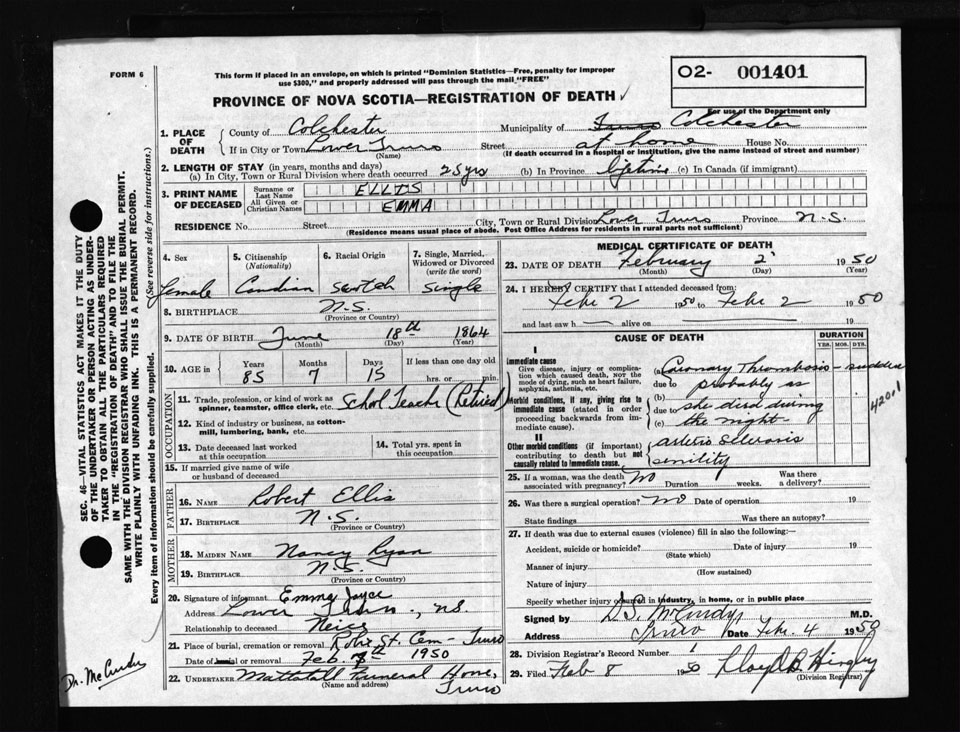 FORM 6
This form if placed in an envelope, on which is printed "Dominion Statistics—Free, penalty for improper
use $300," and properly addressed will pass through the mail "FREE"
O2- 001401
PROVINCE OF NOVA SCOTIA—REGISTRATION OF DEATH
For use of the Department only
1. PLACE OF DEATH
County of Colchester Municipality of Truro Colchester
If in City or Town Lower Truro Street at home House No.
(Name) (If death occurred in a hospital or institution, give the name instead of street and number)
2. LENGTH OF STAY (in years, months and days)
(a) In City, Town or Rural Division where death occurred 25 yrs (b) In Province lifetime (c) In Canada (if immigrant)
3. PRINT NAME OF DECEASED
Surname or Last Name ELLIS
All Given or Christian Names EMMA
RESIDENCE No. Street City, Town or Rural Division Lower Truro Province N.S.
(Residence means usual place of abode. Post Office Address for residents in rural parts not sufficient)
4. Sex 5. Citizenship (Nationality) 6. Racial Origin 7. Single, Married, Widowed or Divorced (write the word)
female Canadian Scotch Single
8. BIRTHPLACE N.S.
(Province or Country)
9. DATE OF BIRTH June 18th 1864
(Month) (Day) (Year)
10. AGE in Years Months Days If less than one day old
85 7 15 hrs. or min.
OCCUPATION
11. Trade, profession or kind of work as spinner, teamster, office clerk, etc. School Teacher (Retired)
12. Kind of industry or business, as cotton-mill, lumbering, bank, etc.
13. Date deceased last worked at this occupation
14. Total yrs. spent in this occupation
15. If married give name of wife or husband of deceased
FATHER
16. NAME Robert Ellis
17. BIRTHPLACE N.S.
(Province or Country)
MOTHER
18. MAIDEN NAME Nancy Ryan
19. BIRTHPLACE N.S.
(Province or Country)
20. Signature of informant Emma Joyce
Address Lower Truro, N.S.
Relationship to deceased Neice
21. Place of burial, cremation or removal Robie St. Cem - Truro
Date of burial or removal Feb. 1950
22. UNDERTAKER Mattatall Funeral Home,
(Name and address) Truro
MEDICAL CERTIFICATE OF DEATH
23. DATE OF DEATH February 2 1950
(Month) (Day) (Year)
24. I HEREBY CERTIFY that I attended deceased from:
Feb 2 1950 to Feb 2 1950
and last saw h — alive on 19
CAUSE OF DEATH DURATION
YRS. MOS. DYS.
I
Immediate cause
Give disease, injury or complication which caused death, not the mode of dying, such as heart failure, asphyxia, asthenia, etc.
(a) Coronary Thrombosis - sudden
due to probably as
Morbid conditions, if any, giving rise to immediate cause (stated in order proceeding backwards from immediate cause).
(b)
due to she died during
(c) the night
4201
II
Other morbid conditions (if important) contributing to death but not causally related to immediate cause.
arterio Sclerosis
senility
25. If a woman, was the death associated with pregnancy? no Duration weeks. Was there a delivery?
26. Was there a surgical operation? no Date of operation 19
State findings Was there an autopsy?
27. If death was due to external causes (violence) fill in also the following:—
Accident, suicide or homicide? Date of injury 19
(State which)
Manner of injury
(How sustained)
Nature of injury
Specify whether injury occurred in industry, in home, or in public place
Signed by D.S. McCurdy M.D.
Address Truro Date Feb. 4 1950
28. Division Registrar's Record Number 1
29. Filed Feb 8 1950 Lloyd B Hingley
(Division Registrar)
SEC. 46—VITAL STATISTICS ACT MAKES IT THE DUTY
OF THE UNDERTAKER OR PERSON ACTING AS UNDER-
TAKER TO OBTAIN ALL THE PARTICULARS REQUIRED
IN THE "REGISTRATION OF DEATH" AND TO FILE THE
SAME WITH THE DIVISION REGISTRAR WHO SHALL ISSUE THE BURIAL PERMIT.
WRITE PLAINLY WITH UNFADING INK. THIS IS A PERMANENT RECORD.
Every item of information should be carefully supplied. (See reverse side for instructions.)
Dr. McCurdy